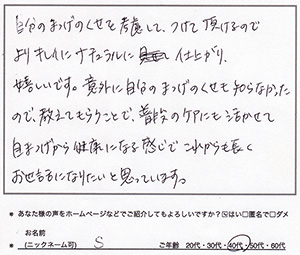 自分のまつげのくせを考慮して、つけて頂けるので
よりキレイにナチュラルに 仕上がり、
嬉しいです。意外に自分のまつげのくせも知らなかった
ので、教えてもらうことで、普段のケアにも活かせて
自まつげから健康になる感じでこれからも長く
お世話になりたいと思っています。
* あなた様の声をホームページなどでご紹介してもよろしいですか?☑はい□匿名で□ダメ
お名前
(ニックネーム可) S ご年齢 20代・30代・40代・50代・60代